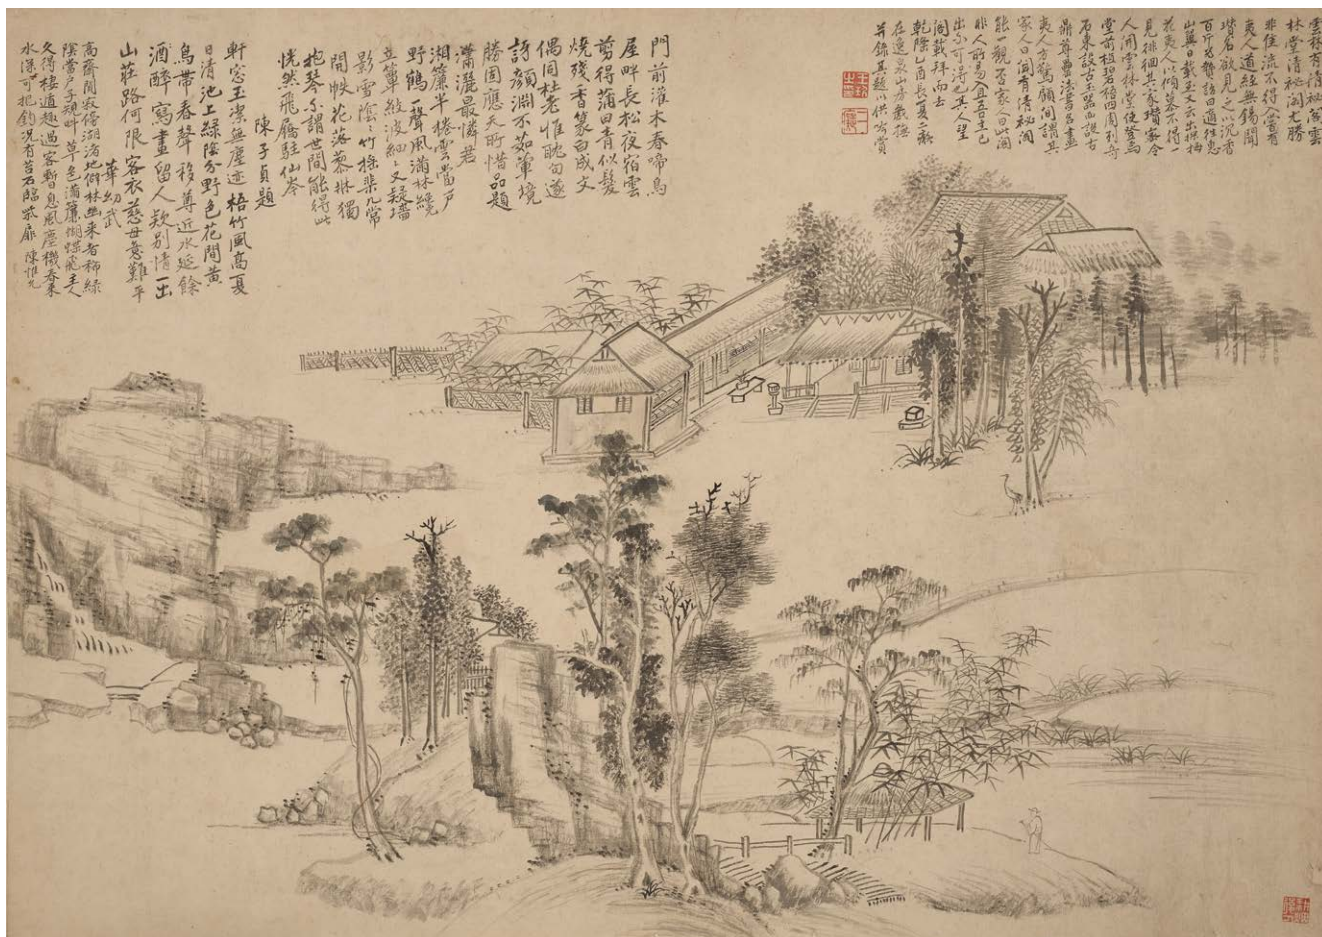 雲林有清祕閣雲
林堂清祕閣尤勝
非佳流不得入嘗有
夷人道經無錫聞
瓚名欲見之以沉香
百斤為贄紿曰適往惠
山翼日載至又云出探梅
花夷人以傾慕不得一
見徘徊其家瓚密令
人開雲林堂使登焉
堂前植碧梧四周列奇
石東設古玉器西設古
鼎尊罍法書名畫
夷人方驚顧間謂其
家人曰聞有清祕閣
能一觀否家人曰此閣
非人所易入且吾主已
出不可得也其人望
閣載拜而去
乾隆乙酉長夏
在遠泉山房敬
并錄其題以供吟賞
門前灌木春啼鳥
屋畔長松夜宿雲
剪得蒲田青似髮
燒殘香篆白成文
偶同杜老惟耽句遂
訝顏淵不茹葷境
勝固應天所惜品題
瀟灑最憐君
湘簾半捲雲當戶
野鶴一聲風滿林繞
立簟紋波細細又疑墻
影雪陰陰竹棐几常
間帙花落琳獨
抱琴不謂世間能得此
恍然飛屬駐仙岑
陳子貞題
軒窓玉潔無塵迹梧竹風高夏
日清池上綠陰分野色花間黃
鳥帶春聲移尊近水延餘
酒醉寫畫留人欵別情一出
山莊路何限客衣慈母意難平
華幼武
高齋閒寂傍湖渚地僻林幽來者稀綠
陰當戶子規呌草色滿簾蝴蝶飛主人
久得棲遁趣過客暫息風塵機春來
水深可把釣況有苔石臨柴扉 陳惟允